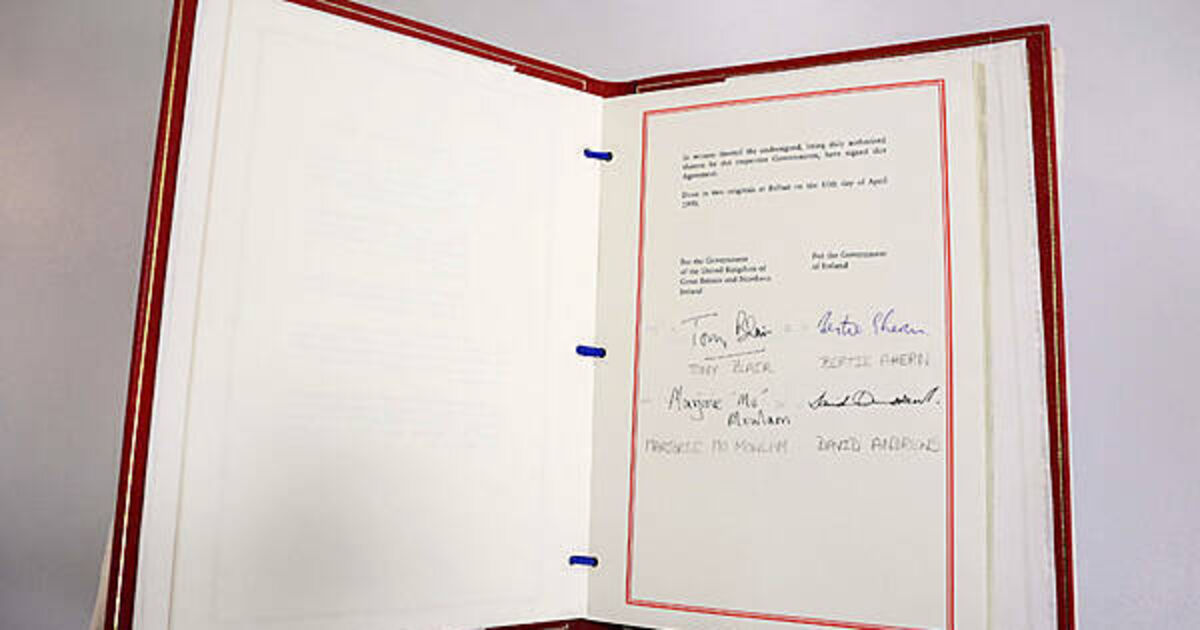 In witness thereof the undersigned, being duly authorised
thereto by the respective Governments, have signed this
Agreement.
Done in two originals at Belfast on the 10th day of April
1998.
For the Government
of the United Kingdom of
Great Britain and Northern
Ireland
For the Government
of Ireland
Tony Blair
Bertie Ahern
TONY BLAIR
BERTIE AHERN
Marjorie "Mo"
Mowlam
David Andrews
MARJORIE MO MOWLAM
DAVID ANDREWS